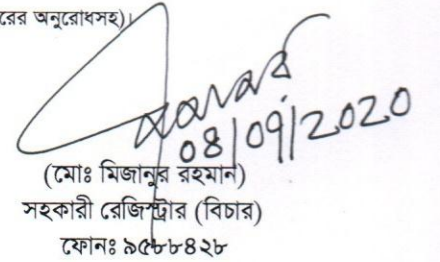 রের অনুরোধসহ)।
08/09/2020
(মোঃ মিজানুর রহমান)
সহকারী রেজিস্ট্রার (বিচার)
ফোনঃ ৯৫৮৮৪২৮